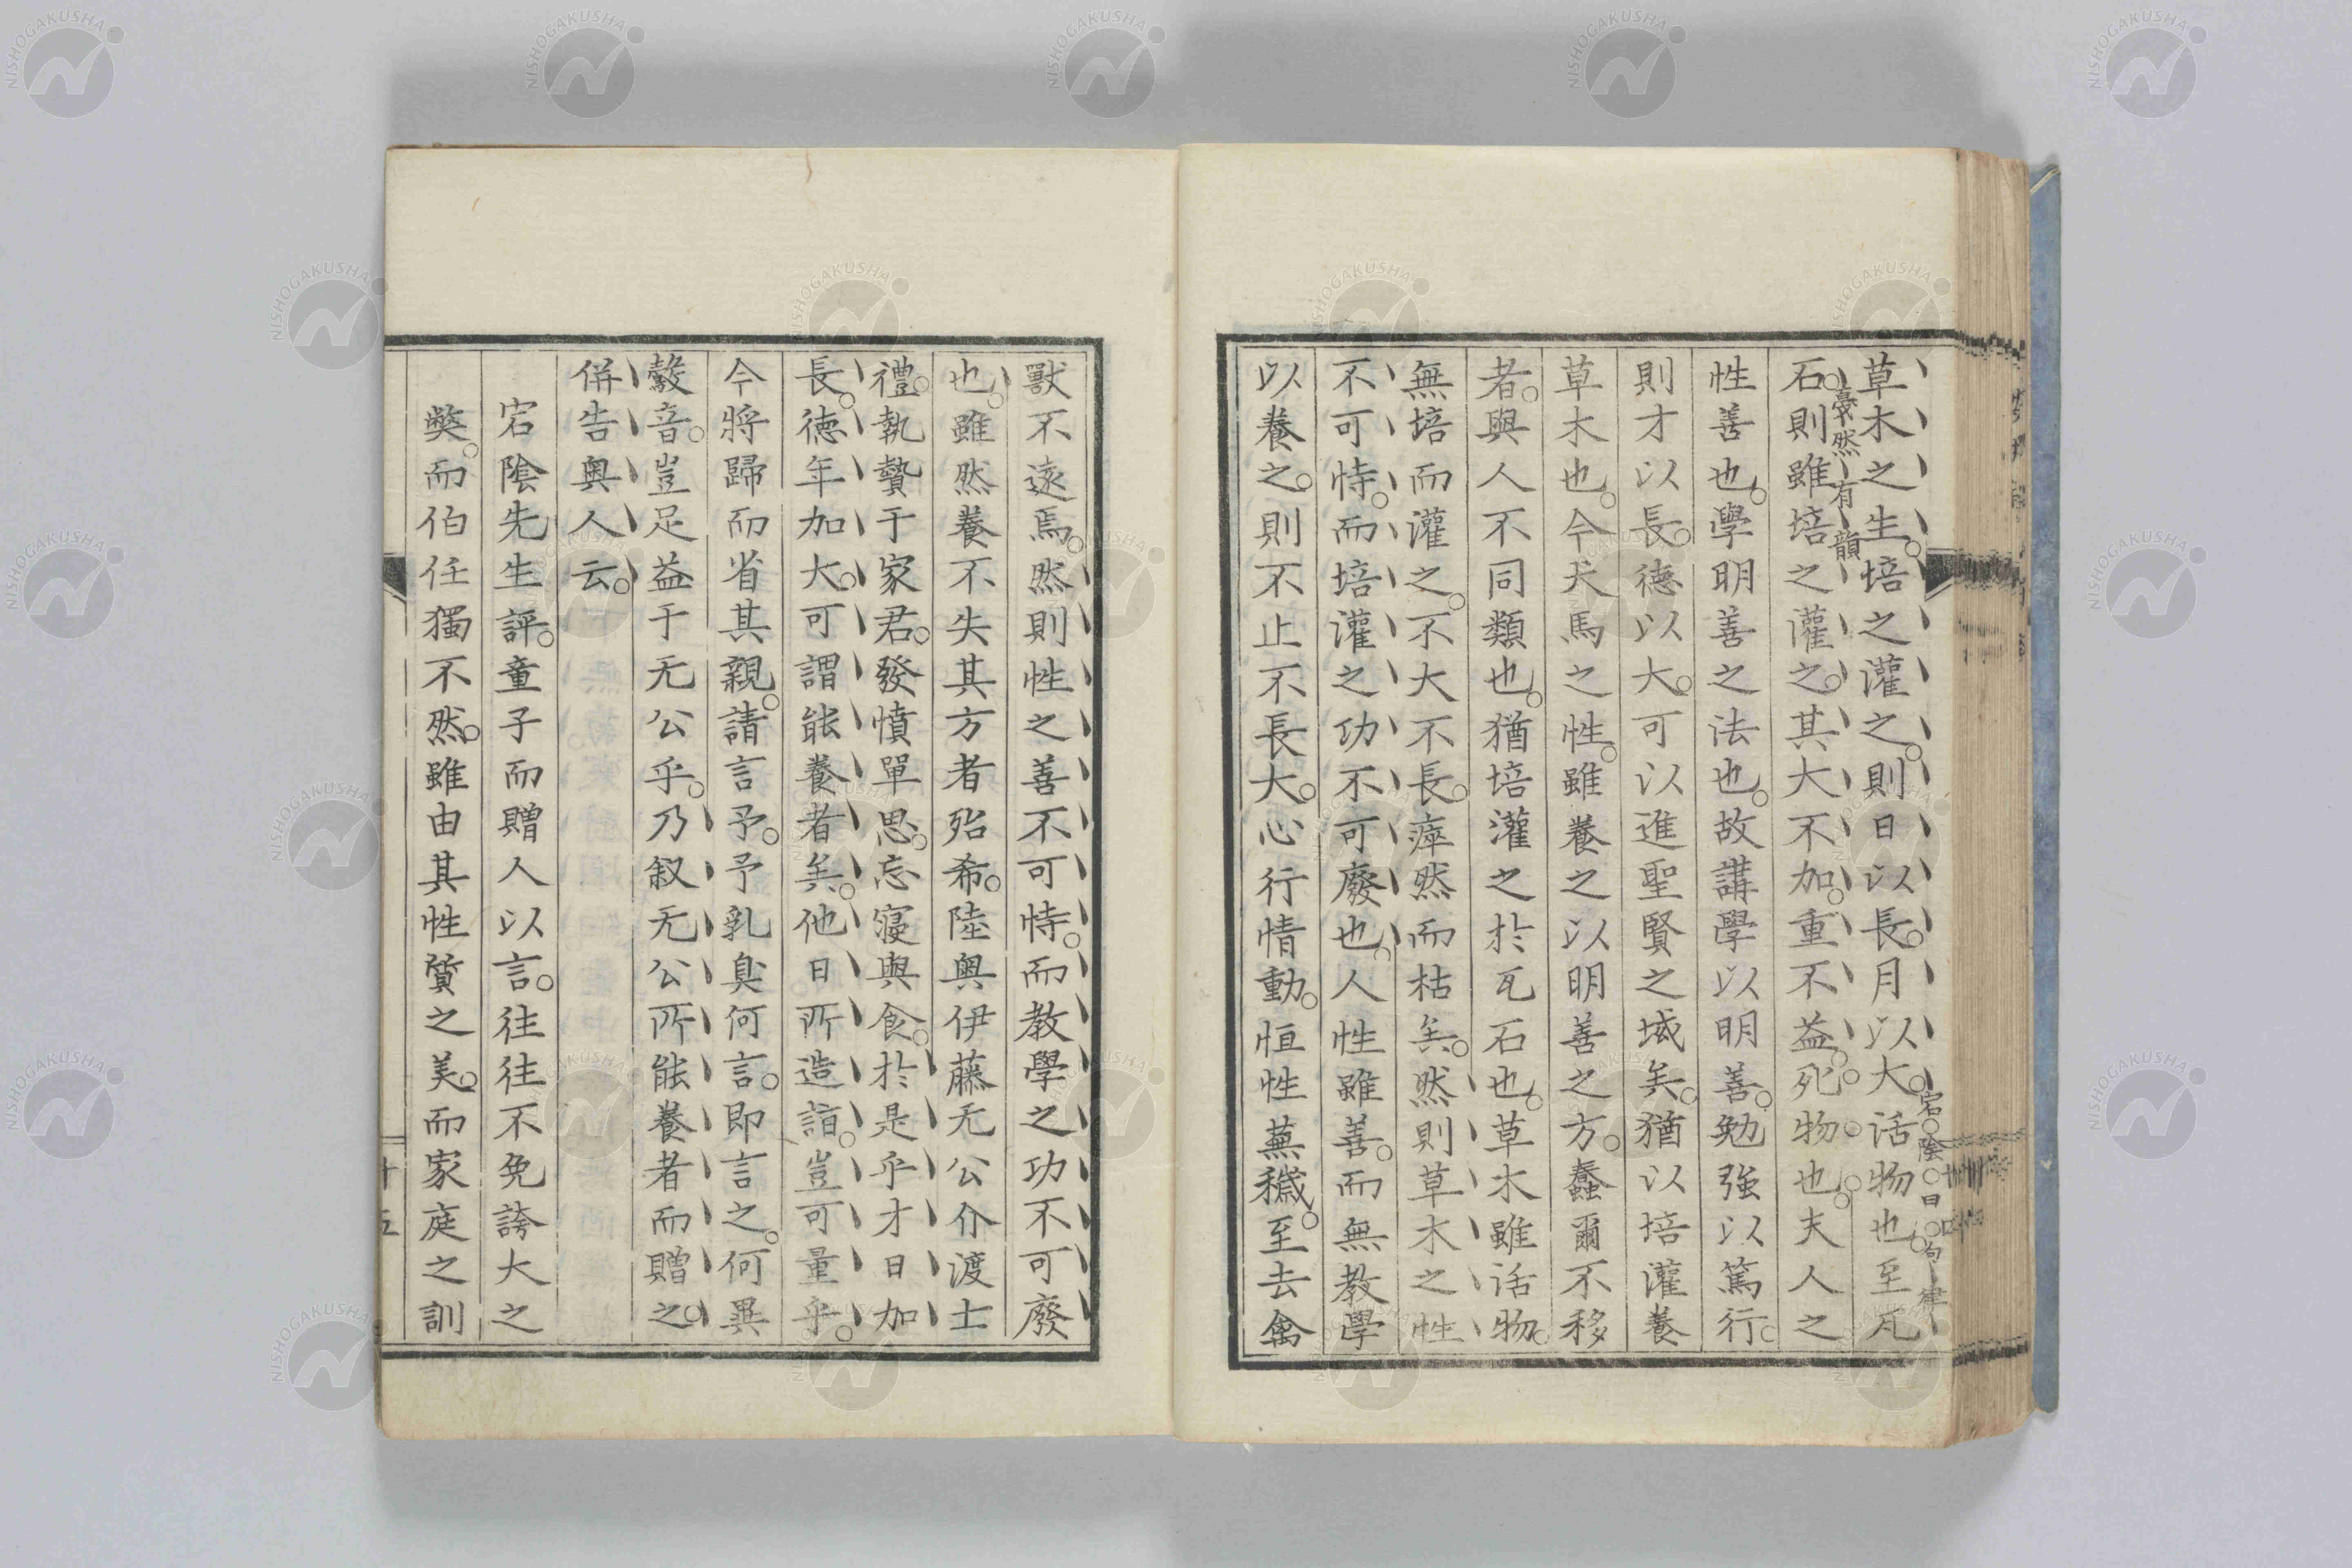 草木之生。培之灌之。則日以長。月以大。活物也至瓦
宕陰曰句律
戞然有韻
石。則雖培之灌之。其大不加。重不益。死物也夫人之
性善也。學明善之法也。故講學以明善。勉強以篤行。
則才以長。德以大。可以進聖賢之域矣。猶以培灌養
草木也。今犬馬之性。雖養之以明善之方。蠢爾不移
者。與人不同類也。猶培灌之於瓦石也。草木雖活物。
無培而灌之。不大不長。瘁然而枯矣。然則草木之性
不可恃。而培灌之功不可廢也。人性雖善。而無教學
以養之。則不止不長大。心行情動。恒性蕪穢。至去禽
獸不遠焉。然則性之善不可恃。而教學之功不可廢
也。雖然養不失其方者殆希。陸奧伊藤无公介渡士
禮。執贄于家君。發憤單思。忘寢與食。於是乎才日加
長。德年加大。可謂能養者矣。他日所造詣。豈可量乎。
今將歸而省其親。請言予。予乳臭何言。即言之。何異
鷇音。豈足益于无公乎。乃叙无公所能養者而贈之。
併告奧人云。
宕陰先生評。童子而贈人以言。往往不免誇大之
獘。而伯任獨不然。雖由其性質之美。而家庭之訓
十五